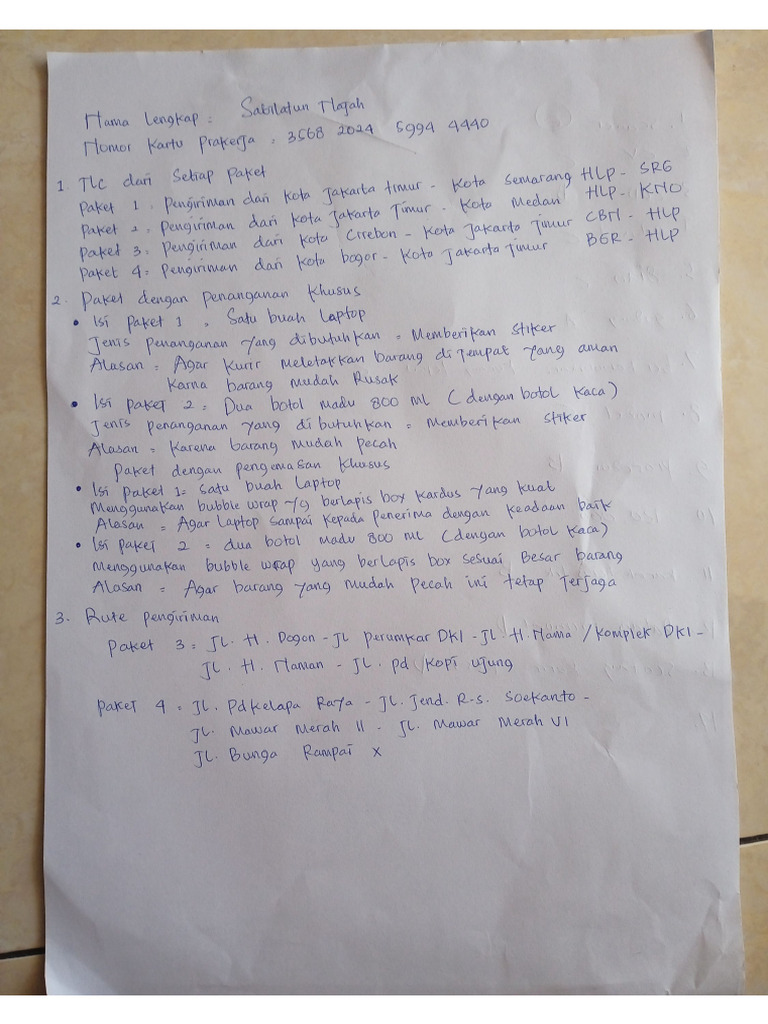 Nama Lengkap : Sabilatun Najah
Nomor Kartu Prakerja : 3568 2024 5994 4440
1. TLC dari Setiap Paket
Paket 1 : Pengiriman dari Kota Jakarta timur - Kota Semarang HLP - SRG
Paket 2 : Pengiriman dari Kota Jakarta Timur - Kota Medan HLP - KNO
Paket 3 : Pengiriman dari Kota Cirebon - Kota Jakarta Timur CBN - HLP
Paket 4 = Pengiriman dari Kota bogor - Kota Jakarta Timur BGR - HLP
2. Paket dengan penanganan khusus
• Isi paket 1 = Satu buah Laptop
Jenis penanganan yang dibutuhkan = Memberikan Stiker
Alasan = Agar Kurir Meletakkan barang di Tempat yang aman
Karna barang mudah Rusak
• Isi Paket 2 = Dua botol madu 800 ML (dengan botol Kaca)
Jenis penanganan yang dibutuhkan = Memberikan stiker
Alasan = Karena barang mudah pecah
Paket dengan pengemasan Khusus
• Isi paket 1 = Satu buah Laptop
Menggunakan bubble wrap yg berlapis box kardus yang kuat
Alasan = Agar Laptop sampai kepada penerima dengan keadaan baik
• Isi paket 2 = dua botol madu 800 ML (dengan botol Kaca)
Menggunakan bubble wrap yang berlapis box sesuai Besar barang
Alasan = Agar barang yang mudah Pecah ini tetap Terjaga
3. Rute pengiriman
Paket 3 = JL. H. Dogon - JL Perumkar DKI - JL. H. Nama / Komplek DKI -
JL. H. Naman - JL. pd Kopi ujung
Paket 4 = JL. Pd Kelapa Raya - JL. Jend. R.s. Soekanto -
JL. Mawar Merah II - JL. Mawar Merah VI
JL. Bunga Rampai X